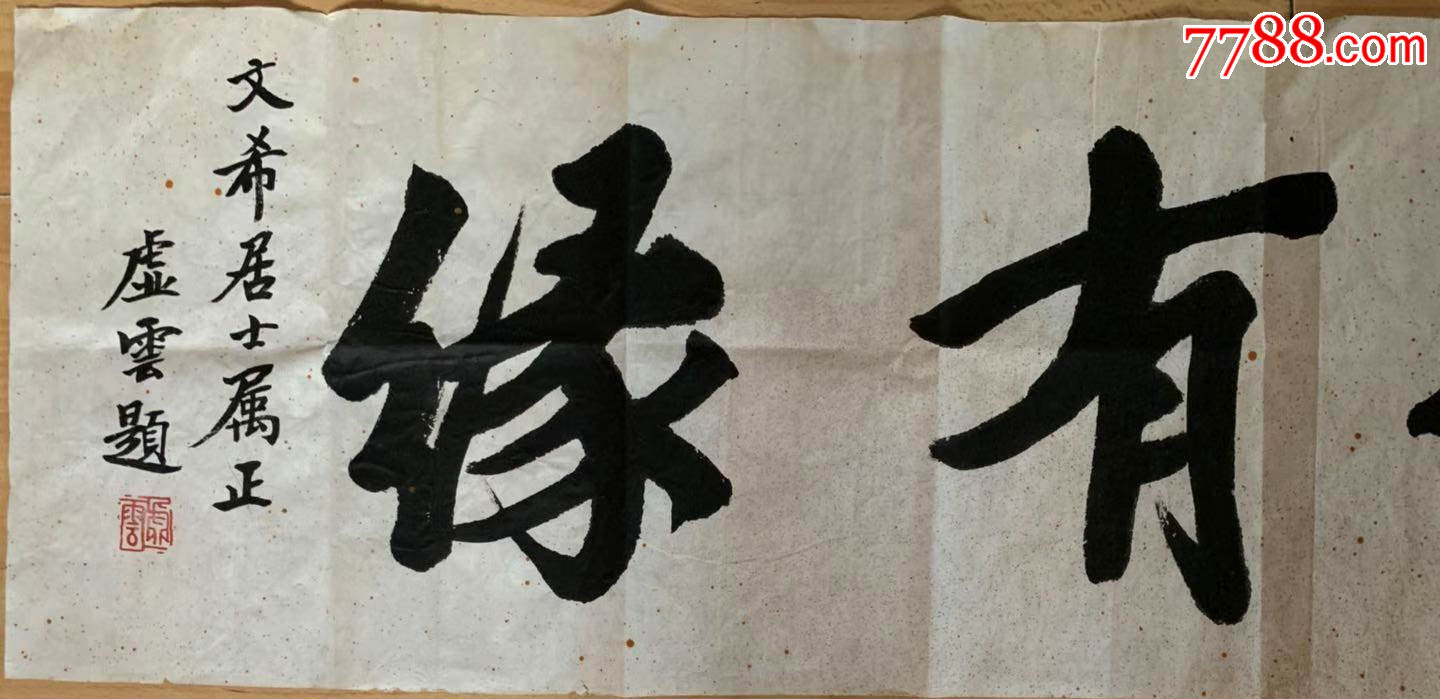 7788.com
有缘
文希居士属正
虚雲題
虚雲